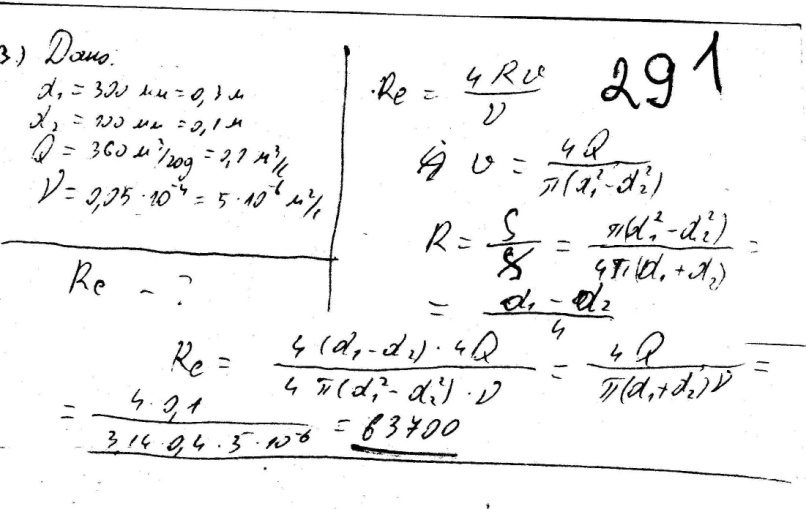 3.) Дано:
d₁ = 300 мм = 0,3 м
d₂ = 100 мм = 0,1 м
Q = 360 м³/год = 0,1 м³/с
ν = 0,05·10⁻⁴ = 5·10⁻⁶ м²/с
Re - ?
Re = 4Rv/ν
291
v = 4Q/π(d₁²-d₂²)
R = S/χ = π(d₁²-d₂²)/4π(d₁+d₂) =
= d₁-d₂/4
Re = 4(d₁-d₂)·4Q/4π(d₁²-d₂²)·ν = 4Q/π(d₁+d₂)ν =
= 4·0,1/3,14·0,4·5·10⁻⁶ = 63700